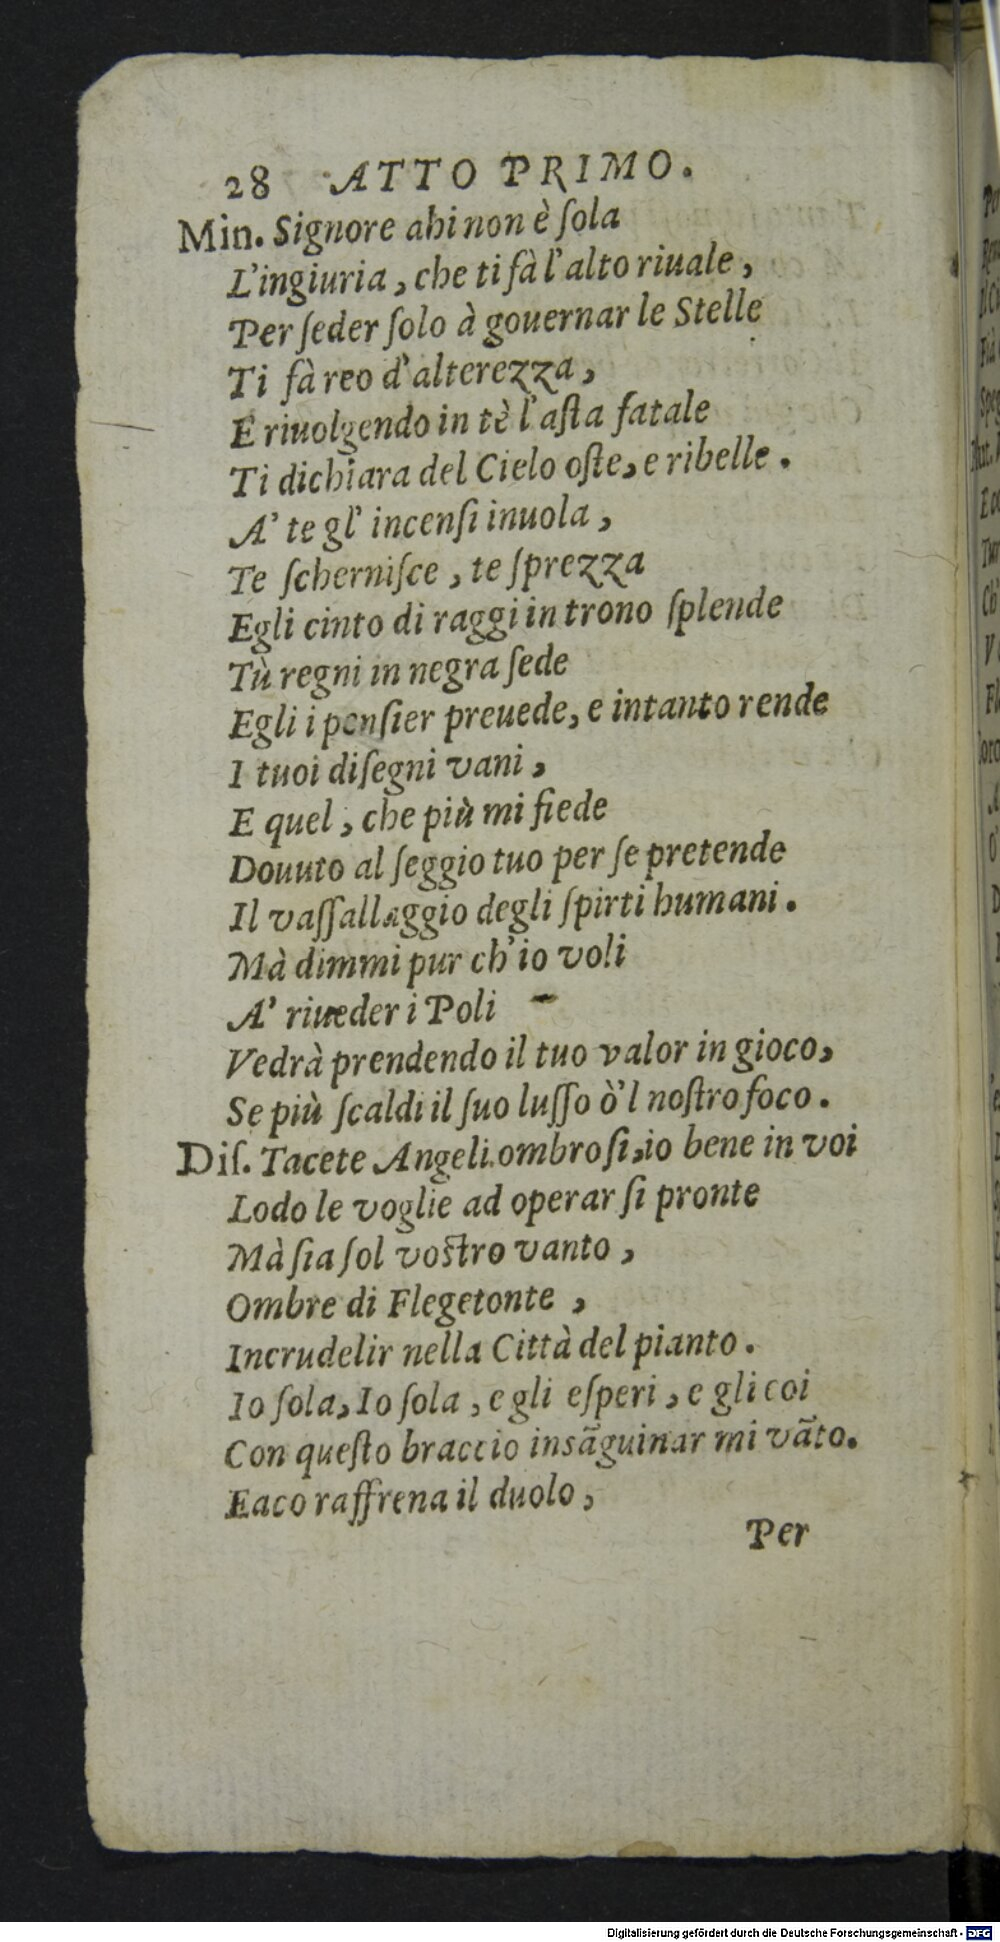 28 ATTO PRIMO.
Min. Signore ahi non è ſola
L'ingiuria, che ti fà l'alto riuale,
Per ſeder ſolo à gouernar le Stelle
Ti fà reo d'alterezza,
E riuolgendo in tè l'aſta fatale
Ti dichiara del Cielo oſte, e ribelle.
A' te gl' incenſi inuola,
Te ſcherniſce, te ſprezza
Egli cinto di raggi in trono ſplende
Tù regni in negra ſede
Egli i penſier preuede, e intanto rende
I tuoi diſegni vani,
E quel, che più mi fiede
Douuto al ſeggio tuo per ſe pretende
Il vaſſallaggio degli ſpirti humani.
Mà dimmi pur ch'io voli
A' riueder i Poli
Vedrà prendendo il tuo valor in gioco,
Se più ſcaldi il ſuo luſſo ò'l noſtro foco.
Diſ. Tacete Angeli ombroſi, io bene in voi
Lodo le voglie ad operar ſi pronte
Mà ſia ſol voſtro vanto,
Ombre di Flegetonte,
Incrudelir nella Città del pianto.
Io ſola, Io ſola, e gli eſperi, e gli coi
Con queſto braccio insãguinar mi vãto.
Eaco raffrena il duolo,
Per
Digitalisierung gefördert durch die Deutsche Forschungsgemeinschaft - DFG